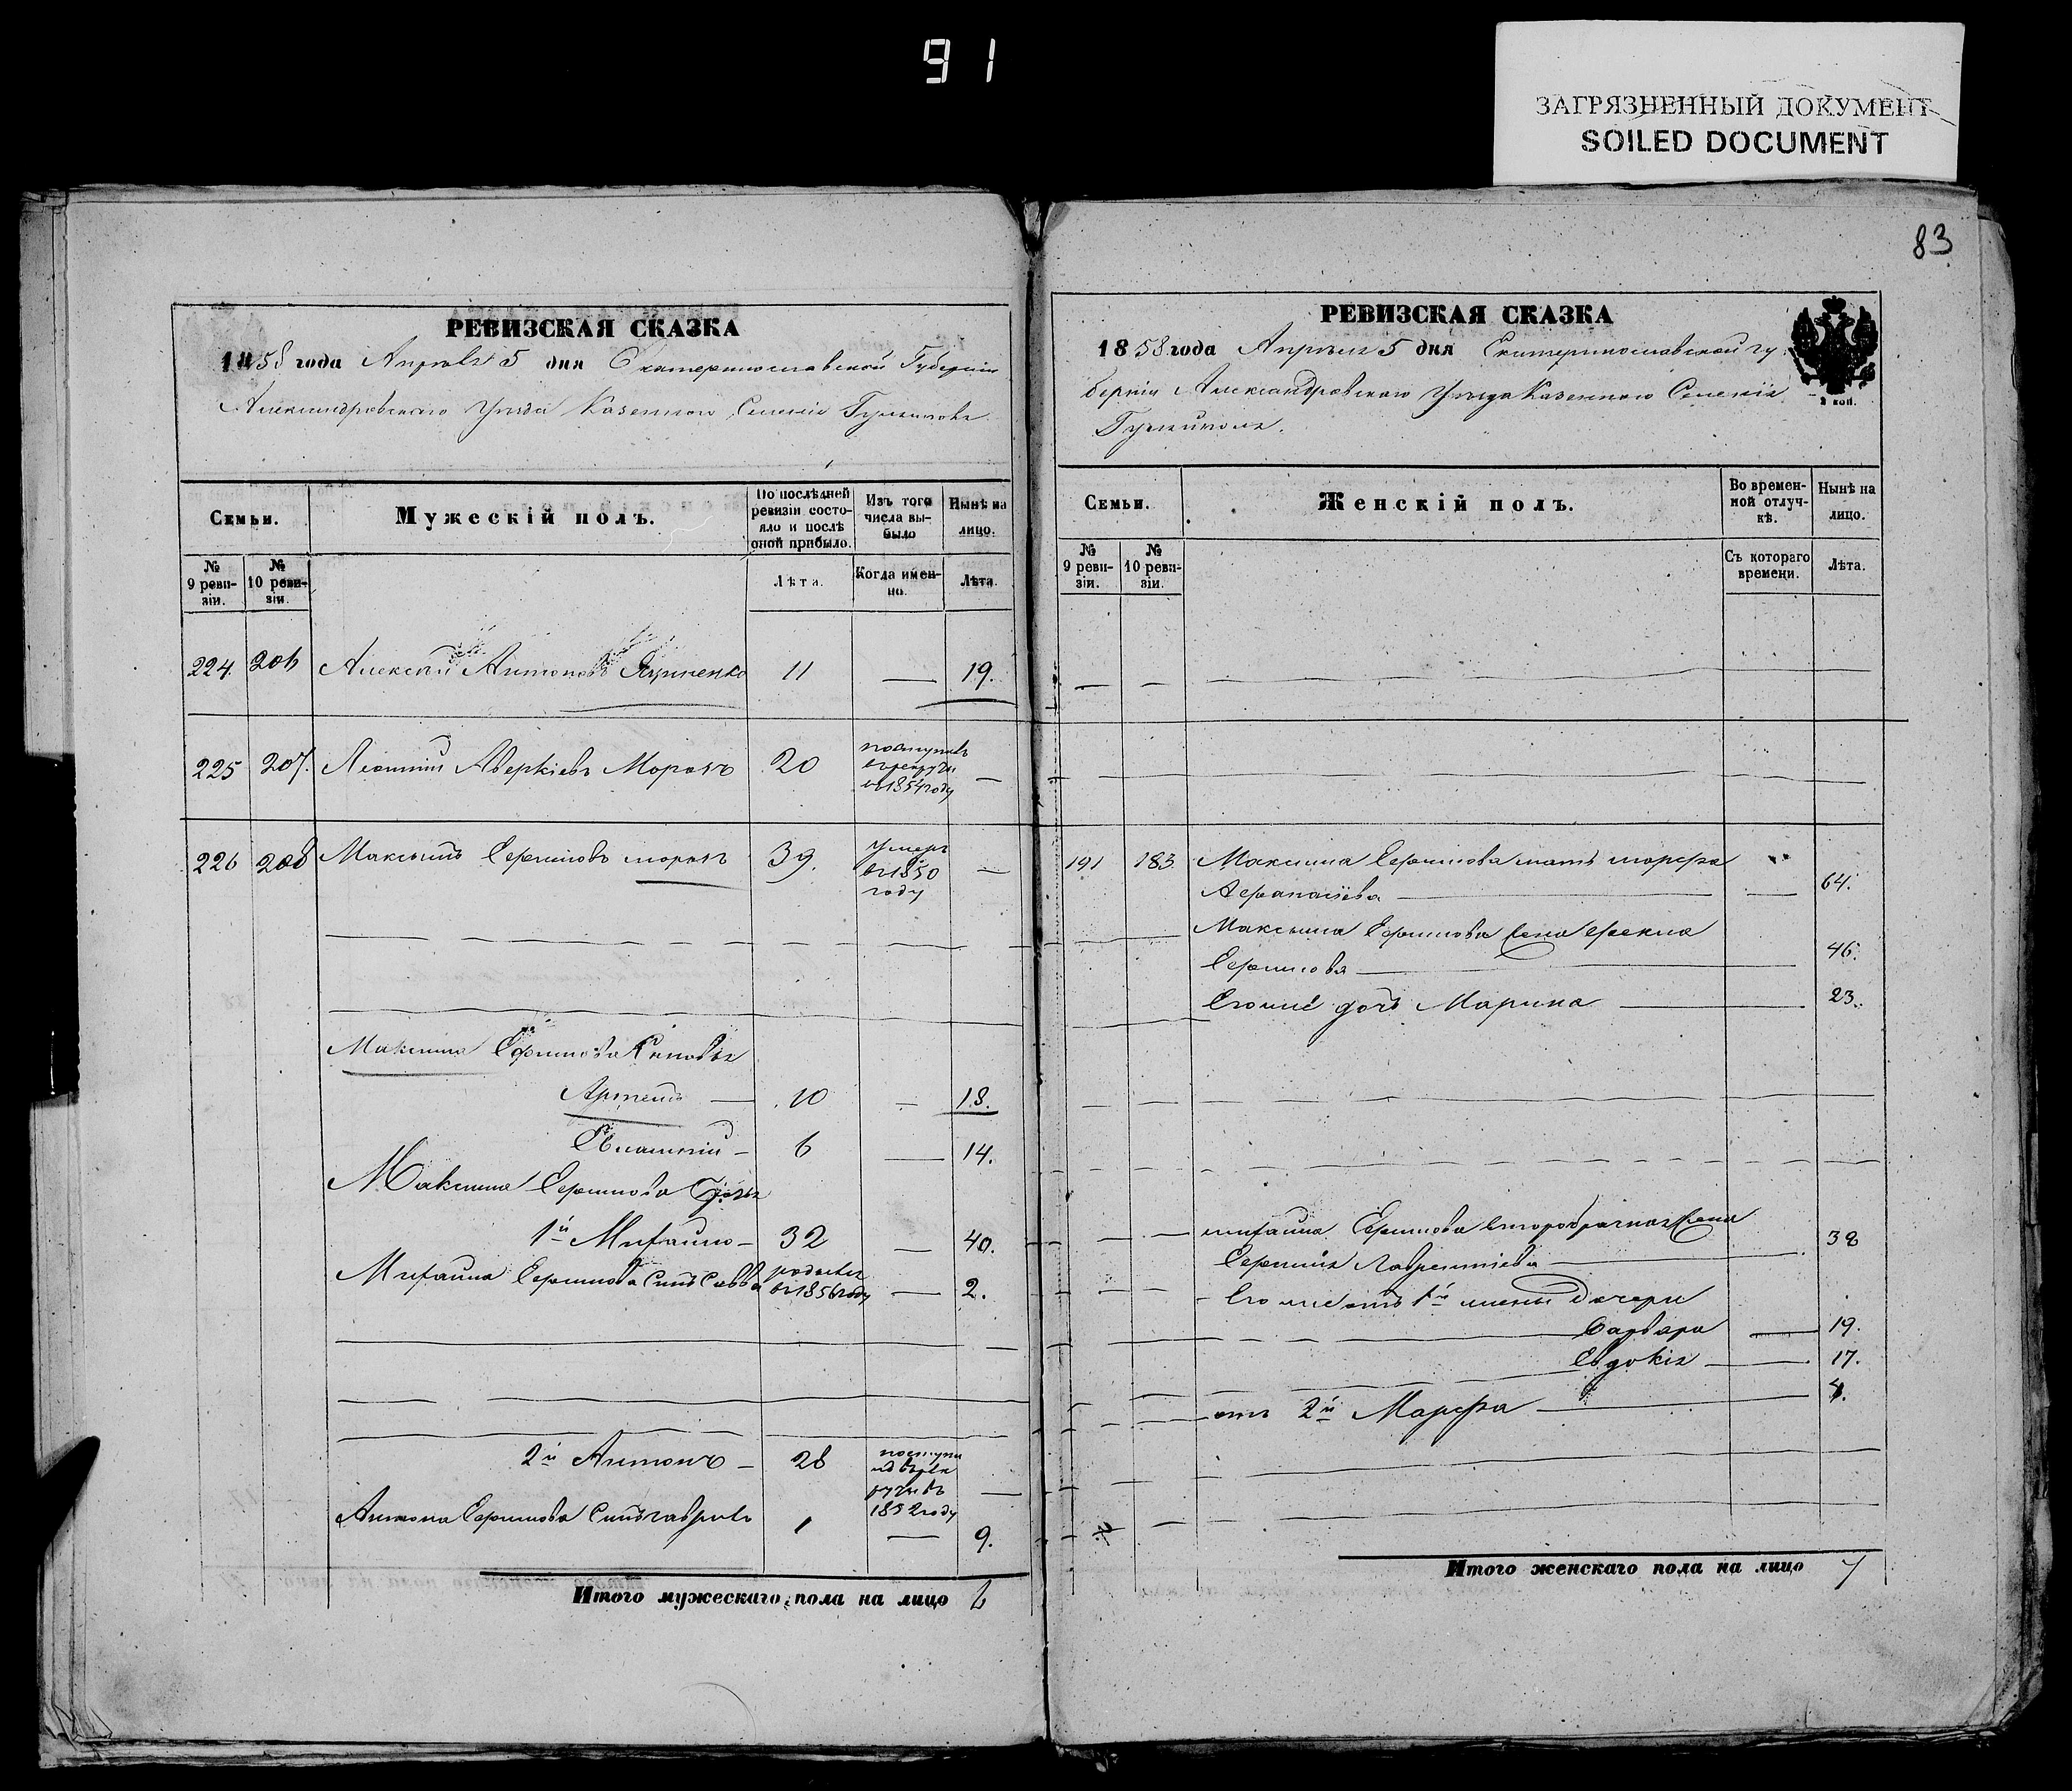 91
ЗАГРЯЗНЕННЫЙ ДОКУМЕНТ
SOILED DOCUMENT
РЕВИЗСКАЯ СКАЗКА
1858 года Апрѣля 5 дня Екатеринославской Губерніи
Александровскаго Уѣзда Казеннаго Селенія
Семьи.
Мужескій полъ.
По послѣдней ревизіи состояло и послѣ оной прибыло.
Изъ того числа выбыло
Нынѣ на лицо.
№ 9 ревизіи.
№ 10 ревизіи.
Лѣта.
Когда именно.
Лѣта.
224. 206 Алексѣй Антоновъ 11 — 19.
225 207. Леонтій Аверкіевъ Морозъ 20 поступилъ въ рекруты въ 1854 году —
226 208 Максимъ Ефимовъ морозъ 39. Умеръ въ 1850 году —
Максима Ефимова Сыновья
Артемъ — 10 — 18.
Евлампій — 6 — 14.
Максима Ефимова
1й Михайло — 32 — 40.
Михайла Ефимова Сынъ Савва родился въ 1856 году — 2.
2й Антонъ — 28 поступилъ въ рекруты въ 1852 году —
Антона Ефимова Сынъ гаврило 1 — 9.
Итого мужескаго пола на лицо 6
83
РЕВИЗСКАЯ СКАЗКА
1858 года Апрѣля 5 дня Екатеринославской гу
берніи Александровскаго Уѣзда Казеннаго Селенія
2 коп.
Семьи.
Женскій полъ.
Во временной отлучкѣ.
Нынѣ на лицо.
№ 9 ревизіи.
№ 10 ревизіи.
Съ котораго времени.
Лѣта.
191 183. Максима Ефимова мать марфа
Афанасіева — 64.
Максима Ефимова жена Фекла
Ефимова — 46.
Его же дочь Марина — 23.
михайла Ефимова второбрачная жена
Лаврентіева — 38
Его же отъ 1й жены дочери
Варвара — 19.
Евдокія — 17.
отъ 2й Марфа — 4.
Итого женскаго пола на лицо 7